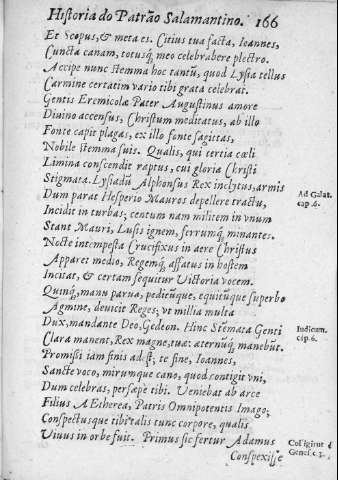 Historia do Patrão Salamantino. 166
Et Scopus, & meta es. Citius tua facta, Ioannes,
Cuncta canam, totusq́; meo celebrabere plectro.
Accipe nunc stemma hoc tantũ, quod Lysia tellus
Carmine certatim vario tibi grata celebrat.
Gentis Eremicolæ Pater Augustinus amore
Diuino accensus, Christum meditatus, ab illo
Fonte capit plagas, ex illo fonte sagittas,
Nobile stemma suis. Qualis, qui tertia cæli
Limina conscendit raptus, cui gloria Christi
Stigmata. Lysiadũ Alphonsus Rex inclytus, armis
Dum parat Hesperio Mauros depellere tractu,
Ad Galat. cap. 6.
Incidit in turbas; centum nam militem in vnum
Stant Mauri, Lusis ignem, ferrumq́; minantes.
Nocte intempesta Crucifixus in aere Christus
Apparet medio, Regemq́; affatus in hostem
Incitat, & certam sequitur Victoria vocem.
Quinq́, manu parua, pedieũque, equitũque superbo
Agmine, deuicit Reges; vt millia multa
Dux, mandante Deo, Gedeon. Hinc Stemata Genti
Iudicum. cap. 6.
Clara manent, Rex magne, tuæ: aternũq́; manebũt.
Promissi iam finis adest; te sine, Ioannes,
Sancte voco, mirumque cano, quod contigit vni,
Dum celebras, persæpe tibi. Veniebat ab arce
Filius Ætherea, Patris Omnipotentis Imago,
Conspectusque tibi tali tunc corpore, qualis
Viuus in orbe fuit. Primus sic fertur Adamus
Colligitur Genes. c. 3.
Conspexisse